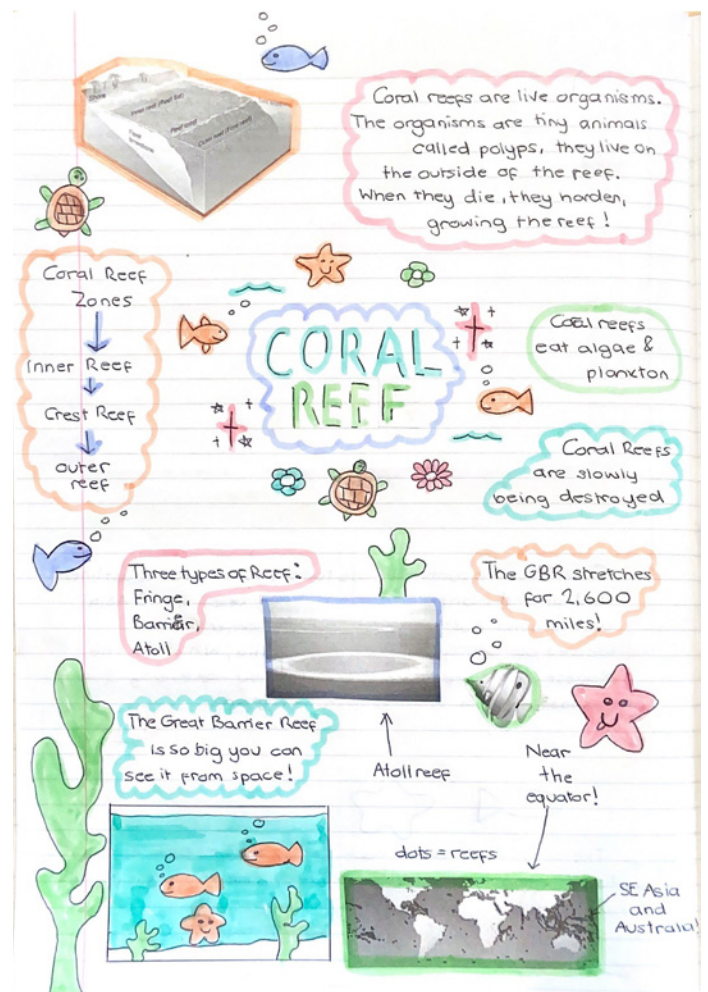 Shore
Inner reef (Reef flat)
Reef crest
Outer reef (Fore reef)
Coral reefs are live organisms.
The organisms are tiny animals
called polyps, they live on
the outside of the reef.
When they die, they harden,
growing the reef!
Coral Reef
Zones
inner Reef
Crest Reef
outer
reef
CORAL
REEF
Coral reefs
eat algae &
plankton
Coral Reefs
are slowly
being destroyed
Three types of Reef:
Fringe,
Barrier,
Atoll
The GBR stretches
for 2,600
miles!
The Great Barrier Reef
is so big you can
see it from space!
Atoll reef
Near
the
equator!
dots = reefs
SE Asia
and
Australia!